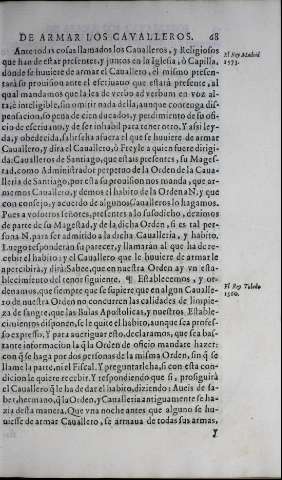 DE ARMAR LOS CAVALLEROS. 68
Ante todas cosas llamados los Caualleros, y Religiosos
que han de estar presentes, y juntos en la Iglesia, ò Capilla,
donde se huuiere de armar el Cauallero, el mismo presen-
tarà su prouision ante el escriuano que estarà presente, al
qual mandamos que la lea de verbo ad verbum en voz al-
ta, è inteligible, sin omitir nada della, aunque contenga dis-
pensacion, so pena de cien ducados, y perdimiento de su ofi-
cio de escriuano, y de ser inhabil para tener otro. Y assi leyda,
y obedecida, saldrasse afuera el que se huuiere de armar
Cauallero, y dira el Cauallero, ò Freyle a quien fuere dirigi-
da: Caualleros de Santiago, que estais presentes, su Mages-
tad, como Administrador perpetuo de la Orden de la Caua-
lleria de Santiago, por esta su prouision nos manda, que ar-
memos Cauallero, y demos el habito de la Orden a N. y que
con consejo, y acuerdo de algunos Caualleros lo hagamos.
Pues a vosotros señores, presentes a lo susodicho, dezimos
de parte de su Magestad, y de la dicha Orden, si es tal per-
sona N. para ser admitido a la dicha Caualleria, y habito.
Luego responderan su parecer, y llamaràn al que ha de re-
cebir el habito: y el Cauallero que le huuiere de armar le
apercibirà, y dirà: Sabee, que en nuestra Orden ay vn esta-
blecimiento del tenor siguiente. ¶ Establecemos, y or-
denamos, que siempre que se supiere que en algun Caualle-
ro de nuestra Orden no concurren las calidades de limpie-
za de sangre, que las Bulas Apostolicas, y nuestros Estable-
cimientos disponen, se le quite el habito, aunque sea profes-
so expresso. Y para aueriguar esto, declaramos, que sea bas-
tante informacion la q̃ la Orden de oficio mandare hazer:
con q̃ se haga por dos personas de la misma Orden, sin q̃ se
llame la parte, ni el Fiscal. Y preguntarleha, si con esta con-
dicion le quiere recebir. Y respondiendo que si, prosiguirà
el Cauallero q̃ le ha de dar el habito, diziendo: Aueis de sa-
ber, hermano, q̃ la Orden, y Caualleria antiguamente se ha-
zia desta manera. Que vna noche antes que alguno se hu-
uiesse de armar Cauallero, se armaua de todas sus armas,
Y
El Rey Madrid
1573.
El Rey Toledo
1560.